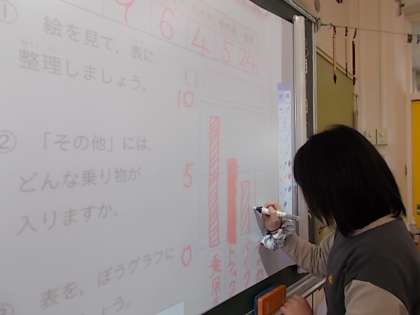 ① 絵を見て、表に
整理しましょう。
9 6 4 5 24
② 「その他」には、
どんな乗り物が
入りますか。
③ 表を、ぼうグラフに
しょう。
10
5
0